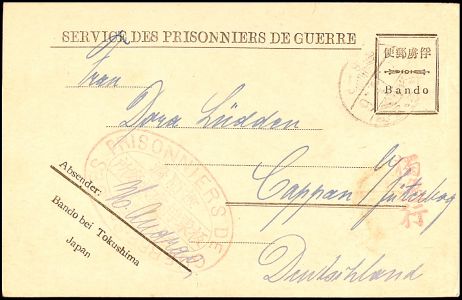 SERVICE DES PRISONNIERS DE GUERRE
便郵虜俘
Bando
Frau
Dora Lüdden
Cappan bei Jüterbog
Deutschland
Absender:
Bando bei Tokushima
Japan
PRISONNIERS DE